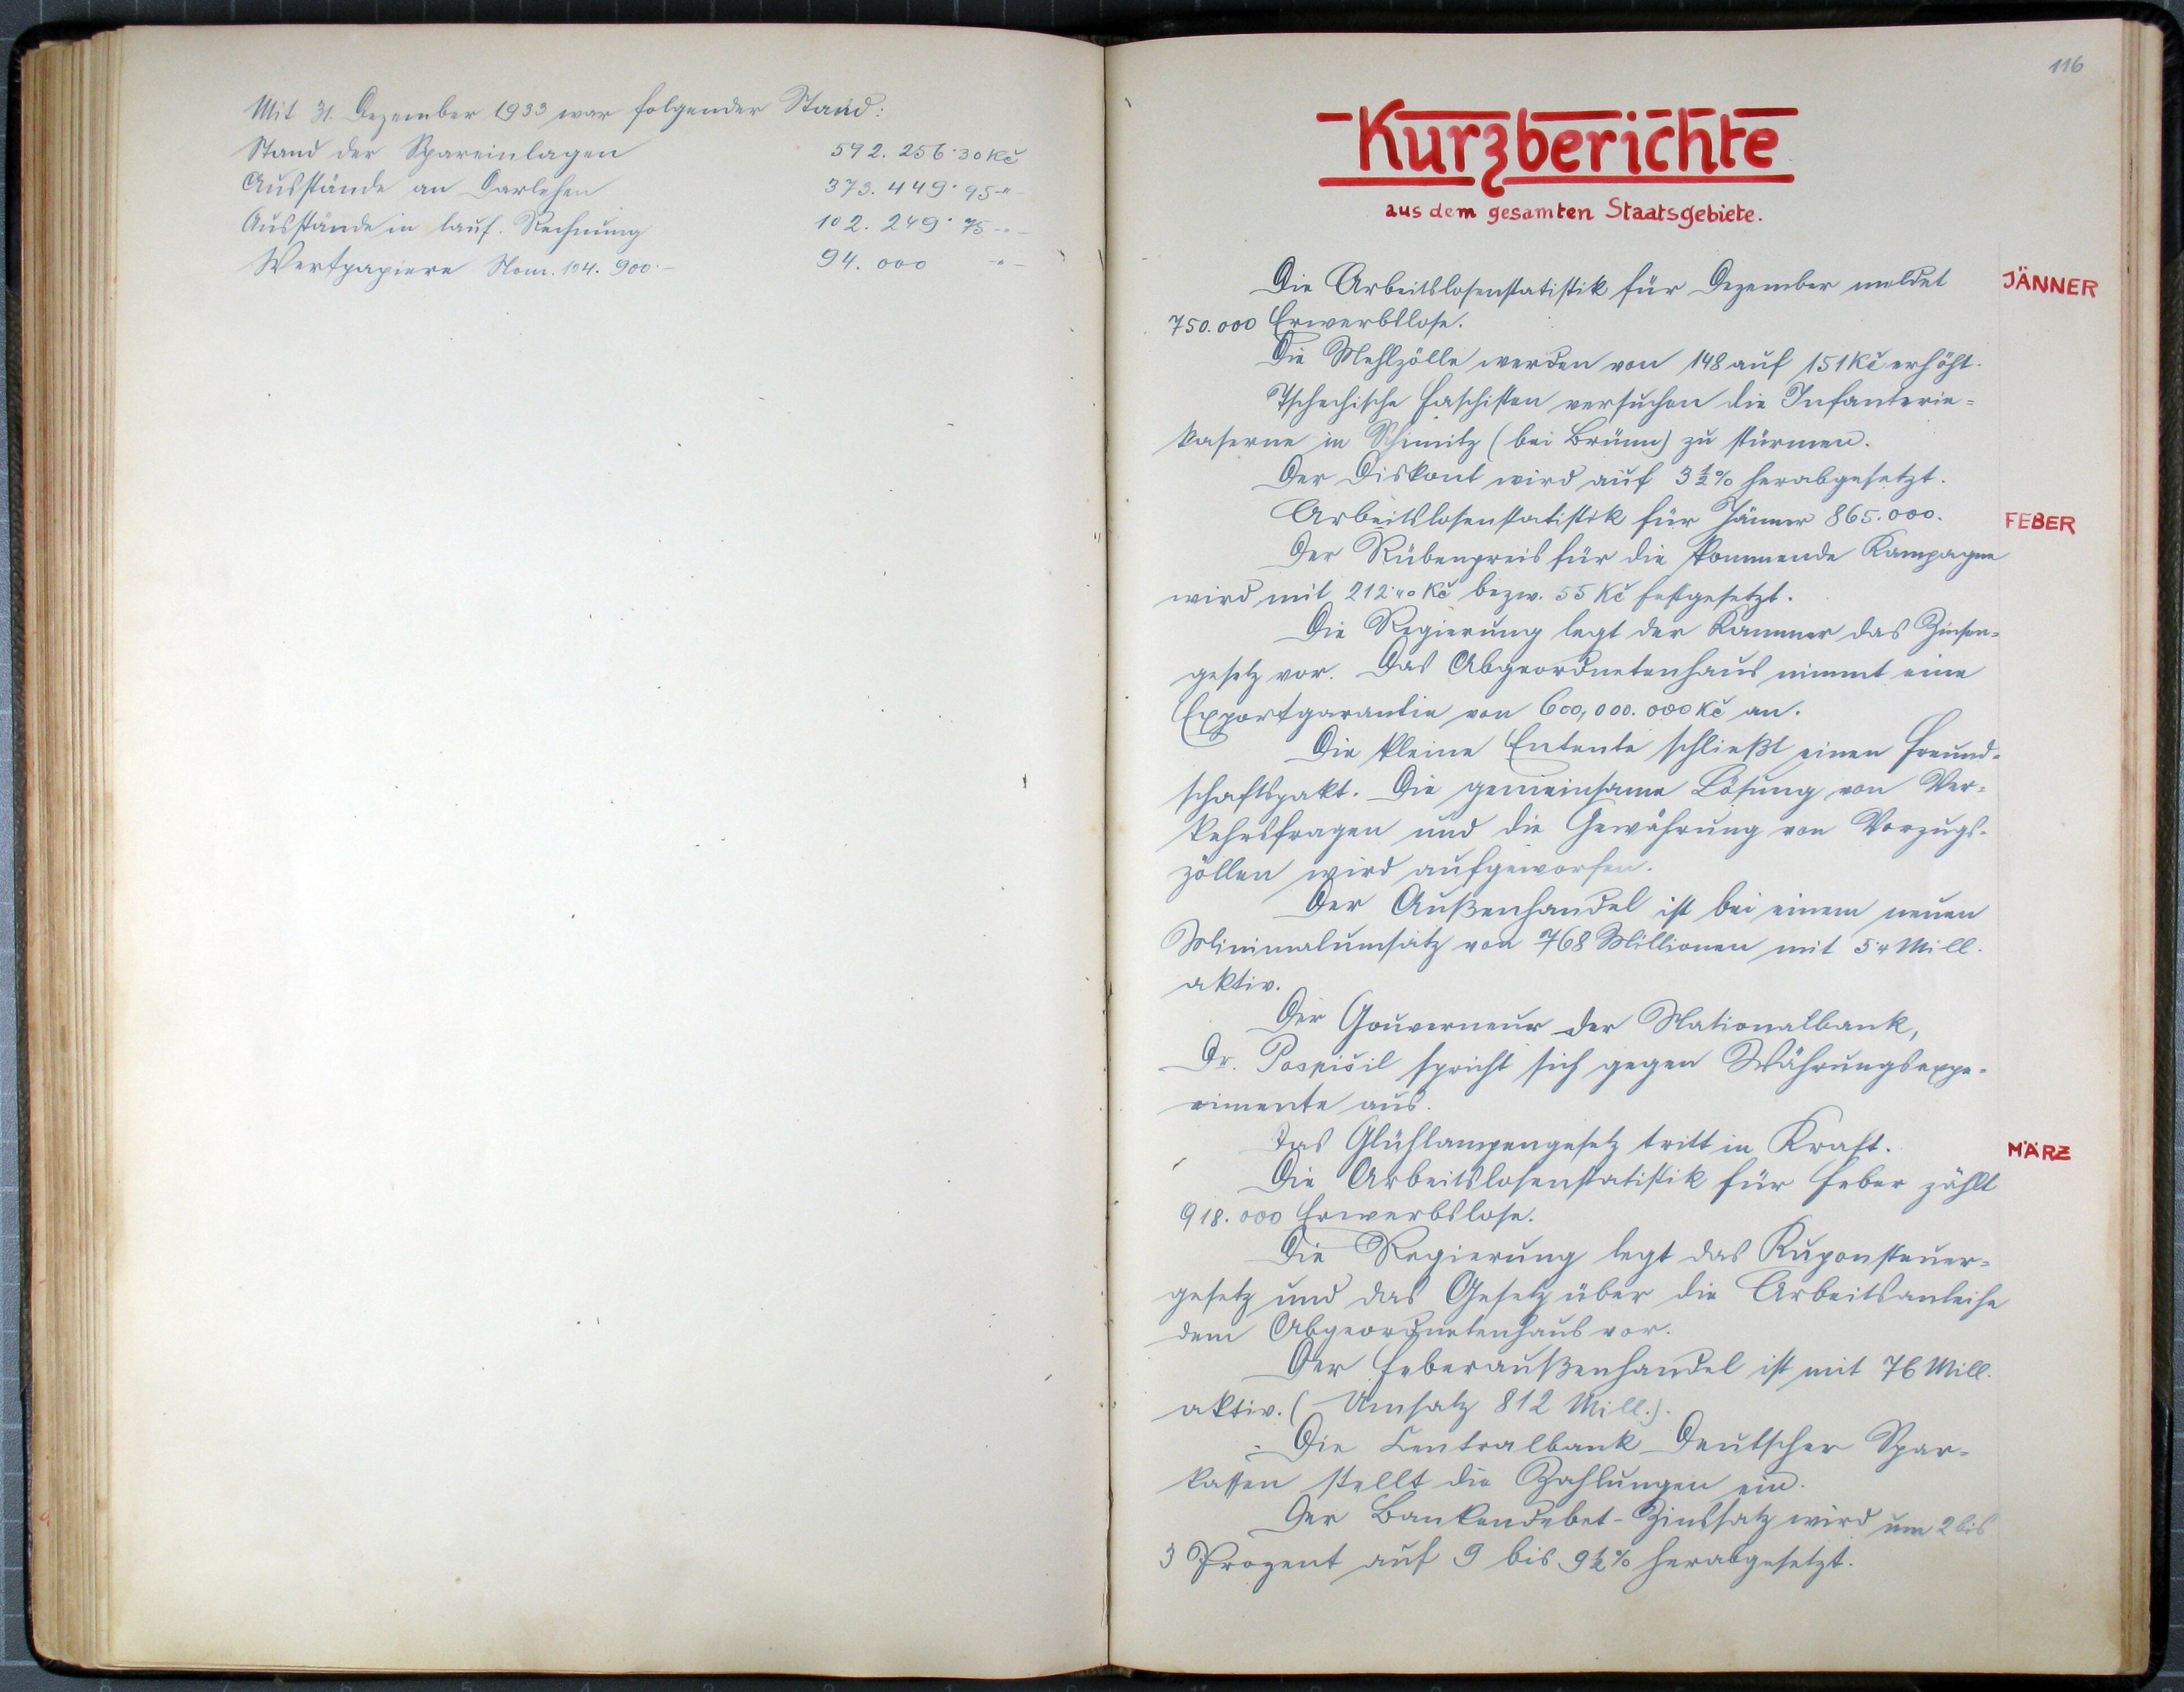 Mit 31. Dezember 1933 war folgender Stand:
Stand der Spareinlagen 592.256·30 Kč
Ausstände an Darlehen 373.449·95 -"-
Ausstände in lauf. Rechnung 102.249·75 -"-
Wertpapiere Nom. 104.900·- 94.000 -"-
116
Kurzberichte
aus dem gesamten Staatsgebiete.
Die Arbeitslosenstatistik für Dezember meldet
JÄNNER
750.000 Erwerbslose.
Die Mehlzölle werden von 148 auf 151 Kč erhöht.
Tschechische Faschisten versuchen die Infanterie=
kaserne in Schimitz (bei Brünn) zu stürmen.
Der Diskont wird auf 3½% herabgesetzt.
Arbeitslosenstatistik für Jänner 865.000.
FEBER
Der Rübenpreis für die kommende Kampagne
wird mit 212·40 Kč bezw. 55 Kč festgesetzt.
Die Regierung legt der Kammer das Zinsen=
gesetz vor. Das Abgeordnetenhaus nimmt eine
Exportgarantie von 600,000.000 Kč an.
Die kleine Entente schließt einen Freund=
schaftspakt. Die gemeinsame Lösung von Ver=
kehrsfragen und die Gewährung von Vorzugs=
zöllen wird aufgeworfen.
Der Außenhandel ist bei einem neuen
Minimalumsatz von 768 Millionen mit 5·4 Mill.
aktiv.
Der Gouverneur der Nationalbank,
Dr. Pospišil spricht sich gegen Währungsexpe=
rimente aus.
Das Glühlampengesetz tritt in Kraft.
MÄRZ
Die Arbeitslosenstatistik für Feber zählt
918.000 Erwerbslose.
Die Regierung legt das Kuponsteuer=
gesetz und das Gesetz über die Arbeitsanleihe
dem Abgeordnetenhaus vor.
Der Feberaußenhandel ist mit 76 Mill.
aktiv. (Umsatz 812 Mill.).
Die Centralbank Deutscher Spar=
kassen stellt die Zahlungen ein.
Der Bankendebet-Zinssatz wird um 2 bis
3 Prozent auf 9 bis 9½% herabgesetzt.